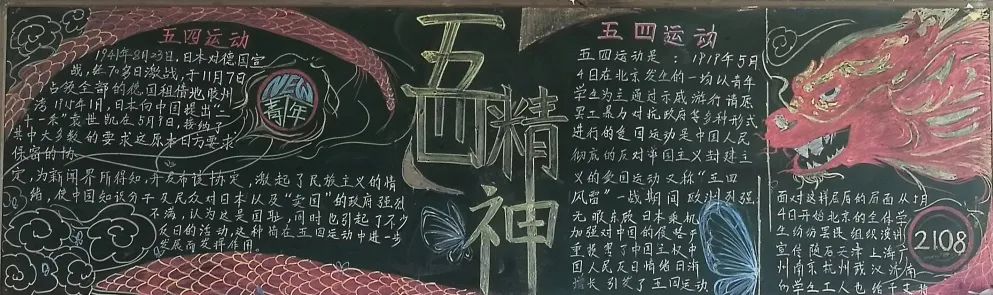 五四运动
1941年8月23日,日本对德国宣
战,经70多日激战,于11月7日
占领全部的德国租借地胶州
湾 1915年1月,日本向中国提出"二
十一条"袁世凯在5月9日,接纳了
其中大多数的要求这原本日方要求
保密的协
定,为新闻界所得知,并发布该协定,激起了民族主义的情
绪,使中国知识分子及民众对日本以及"卖国"的政府强烈
不满,认为这是国耻,同时也引起了不少
反日的活动,这种情在五四运动中进一步
发展而发挥作用。
NEW
青年
五四精神
五四运动
五四运动是:1919年5月
4日在北京发生的一场以青年
学生为主通过示威游行请愿
罢工暴力对抗政府等多种形式
进行的爱国运动是中国人民
彻底的反对帝国主义封建主
义的爱国运动又称"五四
风雷"一战期间欧洲列强
无暇东顾日本乘机
加强对中国的侵略
重损害了中国主权中
国人民反日情绪日渐
增长引发了五四运动
面对这样屈辱的局面从5月
4日开始北京的学生
生纷纷罢课组织演讲
宣传随后天津上海广
州南京杭州武汉济南
的学生工人也给予支持
2108